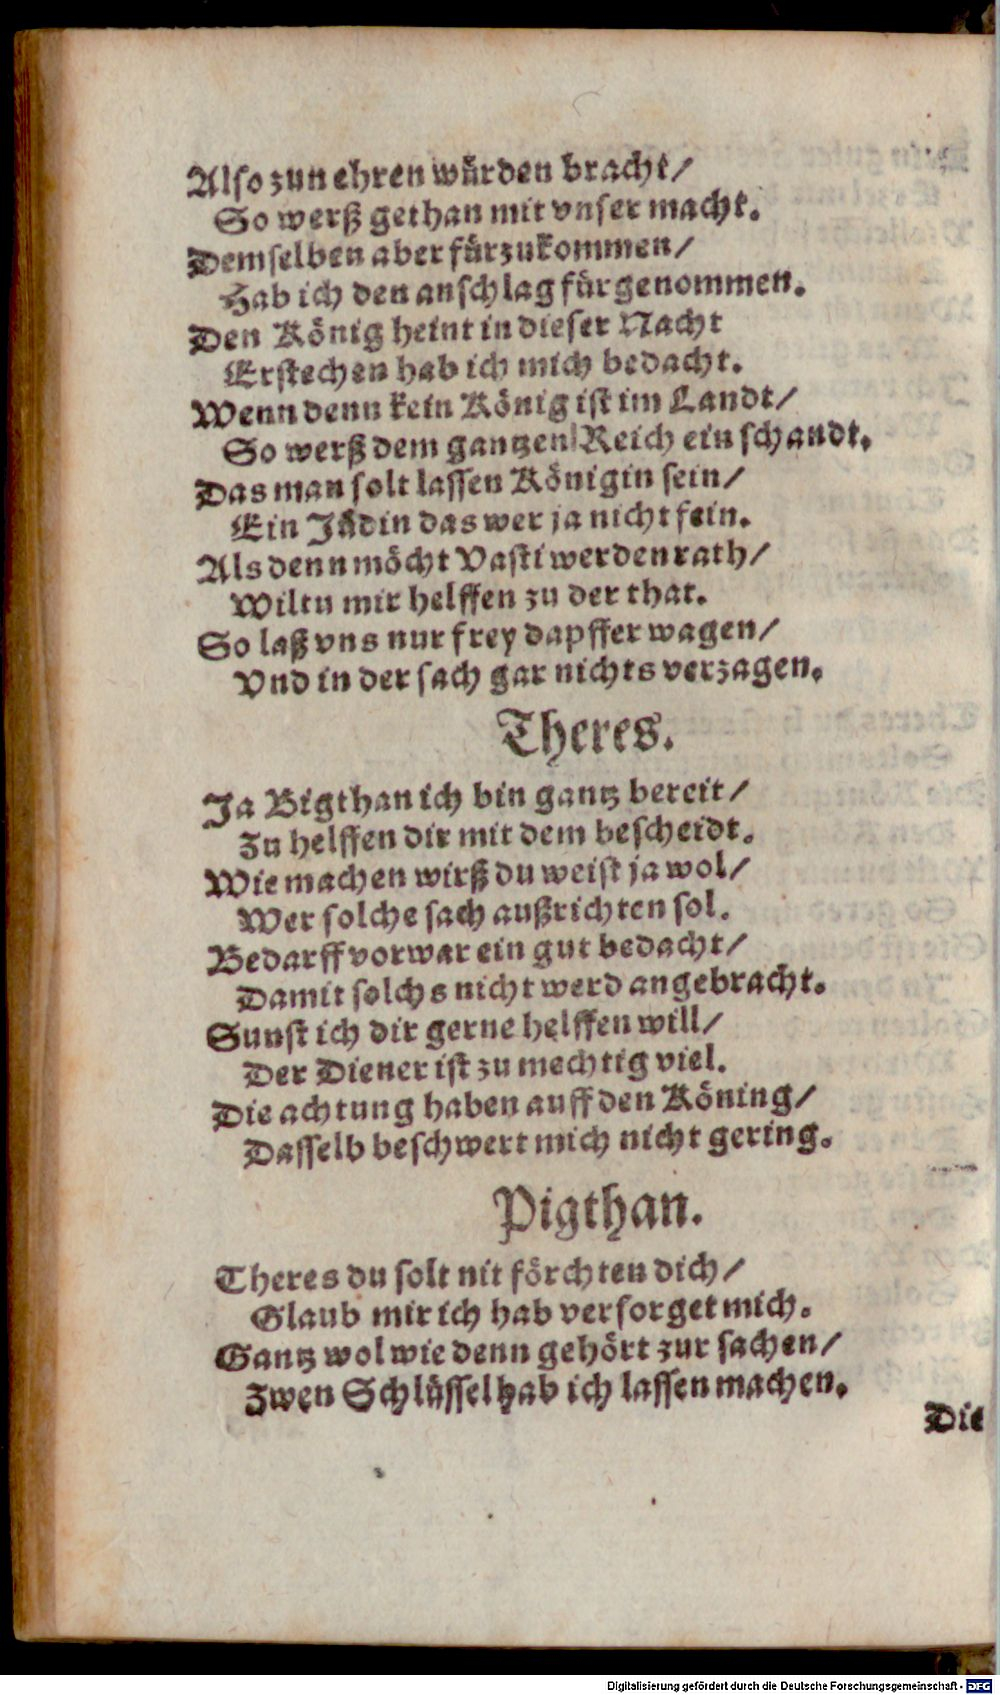 Also zun ehren würden bracht/
So werß gethan mit vnser macht.
Demselben aber fürzukommen/
Hab ich den anschlag fürgenommen.
Den König heint in dieser Nacht
Erstechen hab ich mich bedacht.
Wenn denn kein König ist im Landt/
So werß dem gantzen Reich ein schandt.
Das man solt lassen Königin sein/
Ein Jüdin das wer ja nicht fein.
Als denn möcht Vasti werden rath/
Wiltu mir helffen zu der that.
So laß vns nur frey dapffer wagen/
Vnd in der sach gar nichts verzagen.
Theres.
Ja Bigthan ich bin gantz bereit/
Zu helffen dir mit dem bescheidt.
Wie machen wirß du weist ja wol/
Wer solche sach außrichten sol.
Bedarff vorwar ein gut bedacht/
Damit solchs nicht werd angebracht.
Sunst ich dir gerne helffen will/
Der Diener ist zu mechtig viel.
Die achtung haben auff den Köning/
Dasselb beschwert mich nicht gering.
Pigthan.
Theres du solt nit förchten dich/
Glaub mir ich hab versorget mich.
Gantz wol wie denn gehört zur sachen/
Zwen Schlüssel hab ich lassen machen.
Die
Digitalisierung gefördert durch die Deutsche Forschungsgemeinschaft - DFG